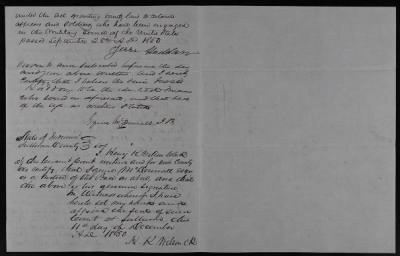 under the act granting bounty land to certain
officers and soldiers who have been engaged
in the Military Service of the United States
passed September 28th A D 1850
Jesse Haddon
Sworn to and subscribed before me the day
and year above written and I hereby
certify that I believe the said
Haddon to be the identical man
who served as aforesaid and that he is
of the age as above stated
J P
State of Indiana
Sullivan County
I Henry K Wilson Clerk
of the Circuit Court within and for said County
do certify that James McDonnell Esqr
is a Justice of the Peace as above, and that
the above is his genuine signature
In testimony whereof I have
hereto set my hand and
affixed the seal of said
Court at Sullivan this
11th day of December
A D 1850
H. K. Wilson Clk